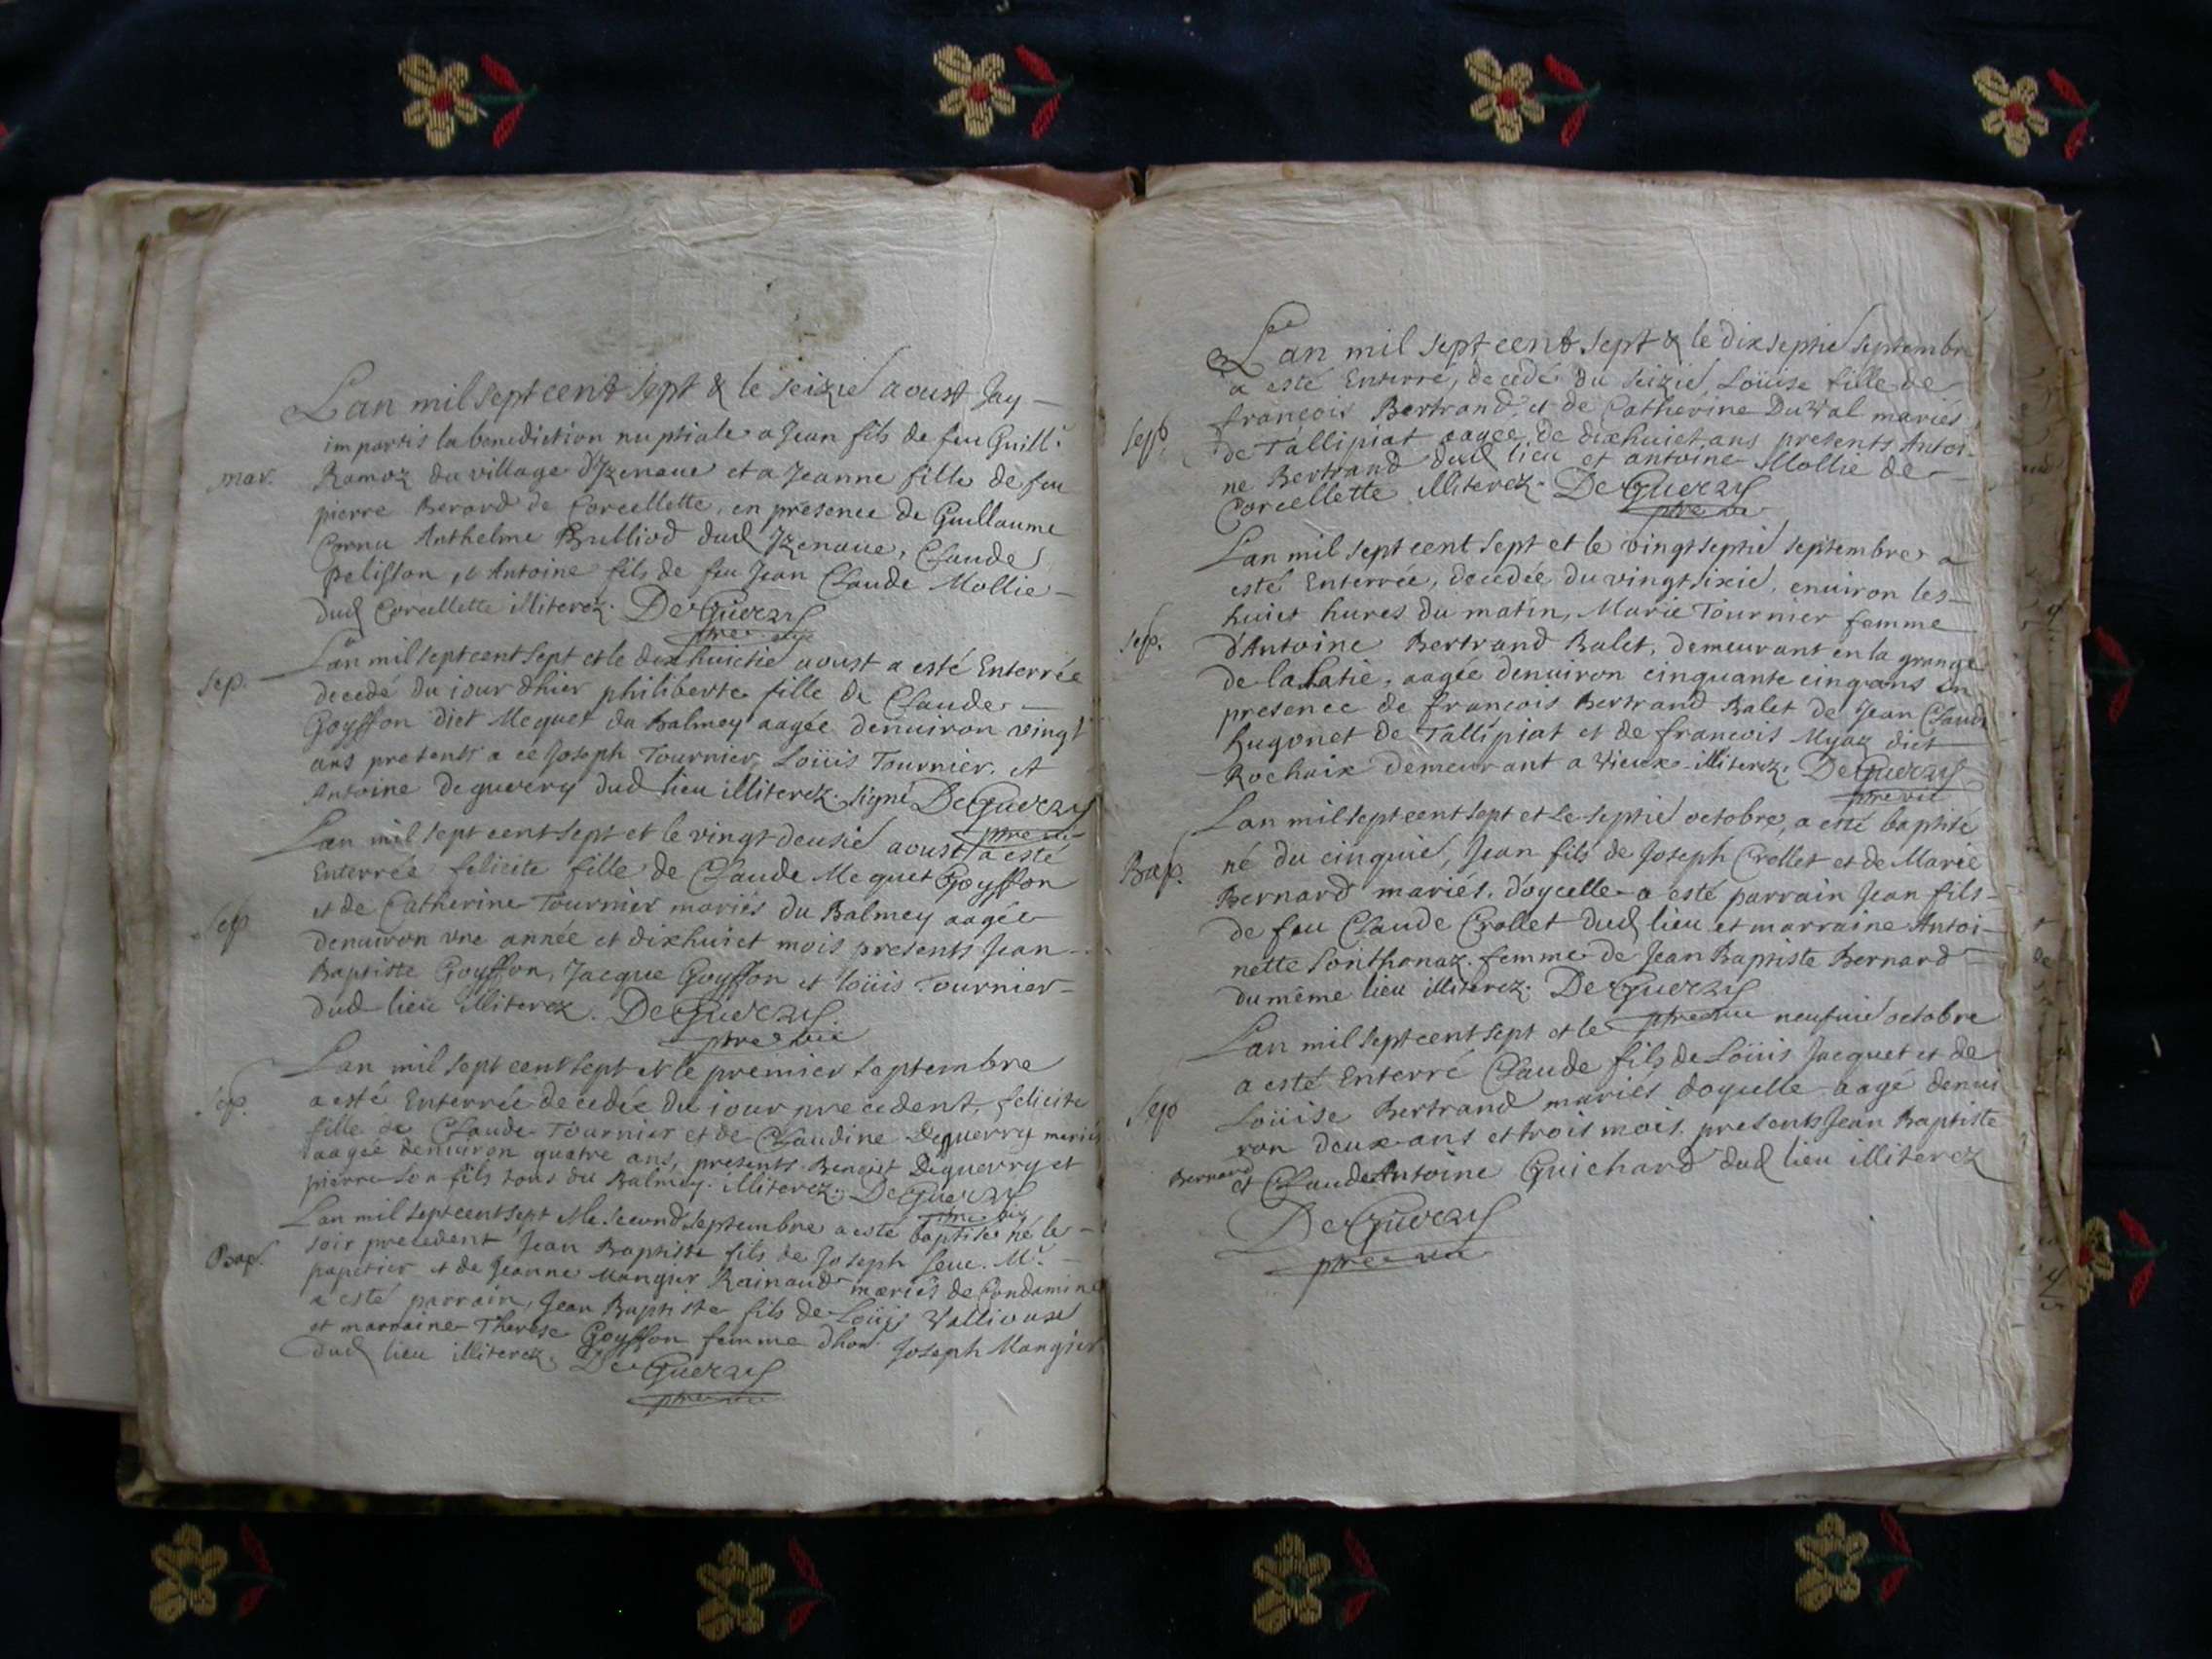 Lan mil sept cent sept & le seizie aoust Jay
impartis la benediction nuptiale a Jean fils de feu Guill.
mar.
Ramoz du village d'Izenave et a Jeanne fille de feu
pierre Berard de Corcellette, en presence de Guillaume
Cornu Anthelme Brulliod dud Izenave, Claude
pelisson, et Antoine fils de feu Jean Claude Mollie
dud Corcellette illiterez. DeGuerry
ptre vic
Lan mil sept cent sept et le dixhuictie aoust a esté Enterrée
Sep.
decedé du iour dhier philiberte fille de Claude
Goyffon dict Mequet du balmey aagée denuiron vingt
ans presents a ce Joseph Tournier, Loüis Tournier, et
Antoine deguerry dud lieu illiterez. signé DeGuerry
ptre vic
Lan mil sept cent sept et le vingt deusie aoust a esté
Enterrée felicite fille de Claude Mequet Goyffon
Sep
et de Catherine Tournier mariés du Balmey aagée
denuiron vne année et dixhuict mois presents Jean
Baptiste Goyffon, Jacque Goyffon et loüis Tournier
dud lieu illiterez. DeGuerry
ptre vic
Lan mil sept cent sept et le premier septembre
Sep.
a esté Enterrée decedée du iour precedent, felicite
fille de Claude Tournier et de Claudine Deguerry mariés
aagée denuiron quatre ans, presents Benoist Deguerry et
pierre son fils tous du Balmey. illiterez. DeGuerry
ptre vic
Lan mil sept cent sept et le second septembre a esté baptisé né le
Bap.
soir precedent Jean Baptiste fils de Joseph Seue. Mr.
papetier et de Jeanne Mangier Rainaud mariés de Condamine
a esté parrain, Jean Baptiste fils de Loüis Vallioux
et marraine Therese Goyffon femme dhon. Joseph Mangier
dud lieu illiterez. DeGuerry
ptre vic
Lan mil sept cent sept & le dixseptie septembre
a esté Enterré, decedé du seizie, Loüise fille de
francois Bertrand, et de Catherine DuVal mariés
Sep.
de Tallipiat aagée de dixhuict ans presents Antoi-
ne Bertrand dud lieu et antoine Mollie de
Corcellette illiterez. DeGuerry
ptre vic
Lan mil sept cent sept et le vingt septie septembre a
esté Enterrée, decedée du vingt sixie, enuiron les
huict hures du matin, Marie Tournier femme
Sep.
d'Antoine Bertrand Balet, demeurant en la grange
de la Latie, aagée denuiron cinquante cinq ans en
presence de francois Bertrand Balet de Jean Claude
hugonet de Tallipiat et de francois Myaz dict
Rochaix demeurant a Vieux illiterez. DeGuerry
ptre vic
Lan mil sept cent sept et le septie octobre, a esté baptisé
Bap.
né du cinquie, Jean fils de Joseph Crollet et de Marie
Bernard mariés. d'oycelle a esté parrain Jean fils
de feu Claude Crollet dud lieu et marraine Antoi-
nette Ponthonaz femme de Jean Baptiste Bernard
du même lieu illiterez. DeGuerry
ptre vic
Lan mil sept cent sept et le neufuie octobre
a esté Enterré Claude fils de Loüis Jacquet et de
Sep
Loüise Bertrand mariés doyselle aagé denui
ron deux ans et trois mois. presents Jean Baptiste
Bernard
et Claude Antoine Guichard dud lieu illiterez
DeGuerry
ptre vic